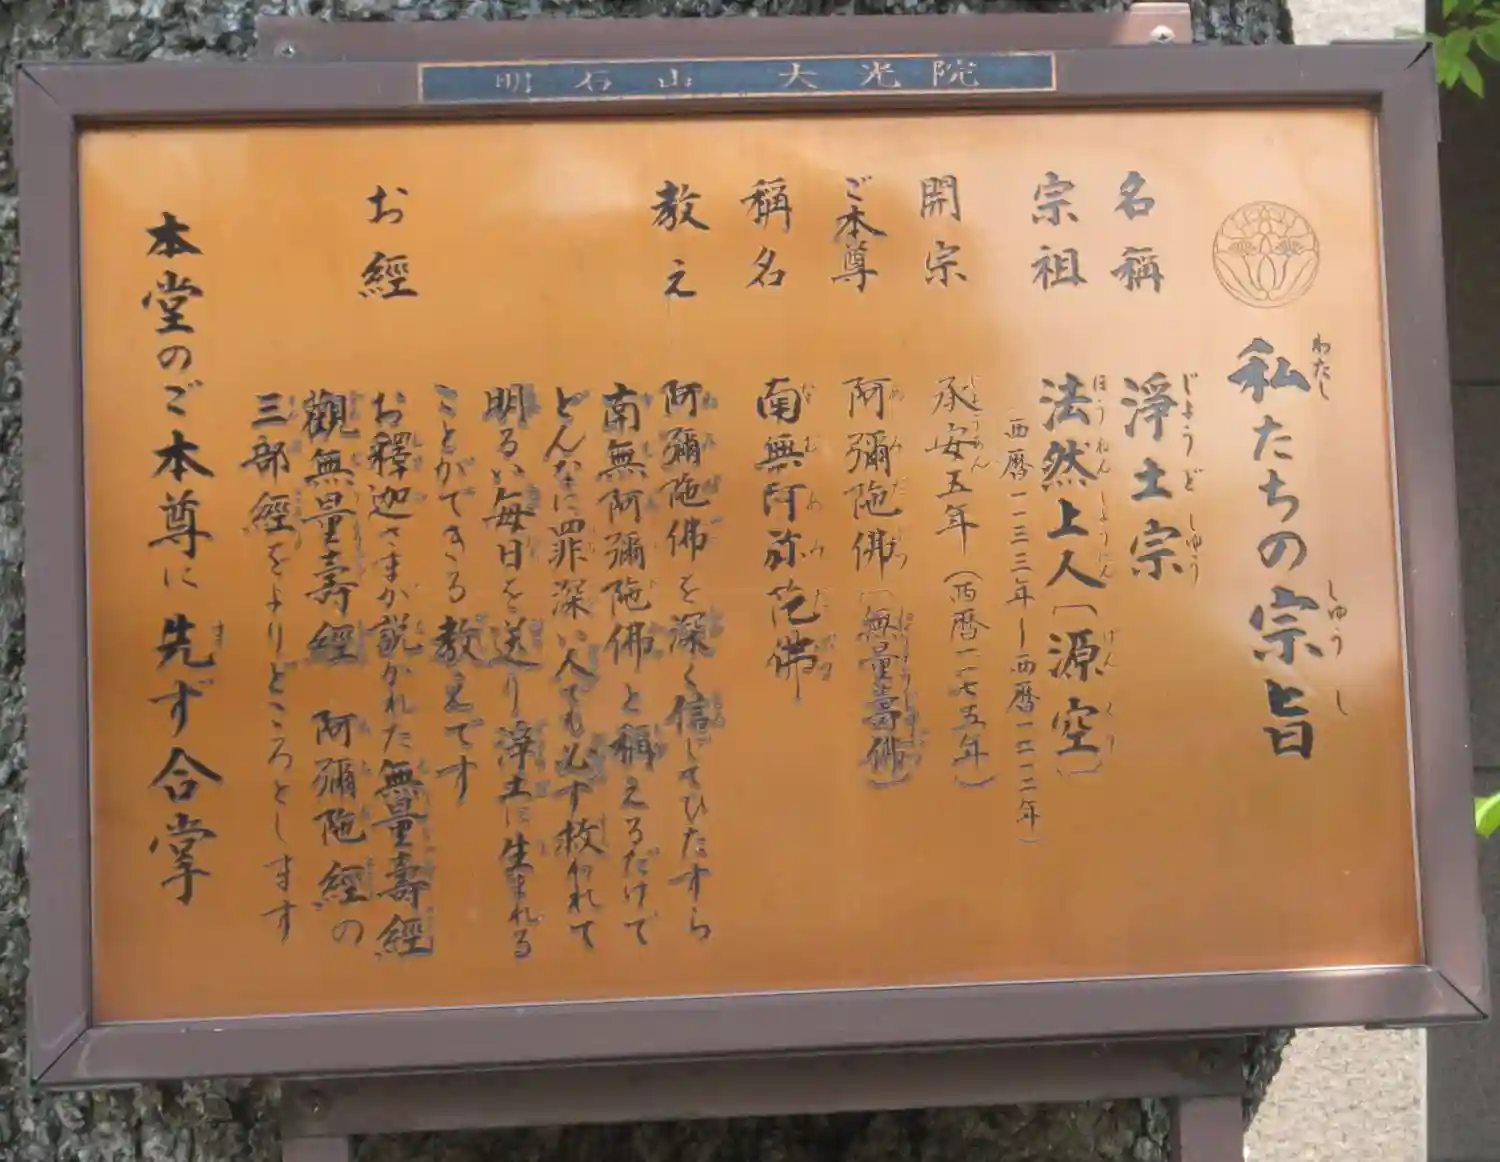 明石山 大光院
私たちの宗旨
名稱 淨土宗
宗祖 法然上人〔源空〕
西暦一一三三年ー西暦一二一二年)
開宗 承安五年(西暦一一七五年)
ご本尊 阿彌陁佛〔無量壽佛〕
稱名 南無阿弥陀佛
教え 阿彌陁佛を深く信じてひたすら
南無阿彌陁佛と稱えるだけで
どんなに罪深い人でも必ず救われて
明るい毎日を送り淨土に生まれる
ことができる教えです
お經 お釋迦さまが説かれた無量壽經
觀無量壽經 阿彌陁經の
三部經をよりどころとします
本堂のご本尊に先ず合掌